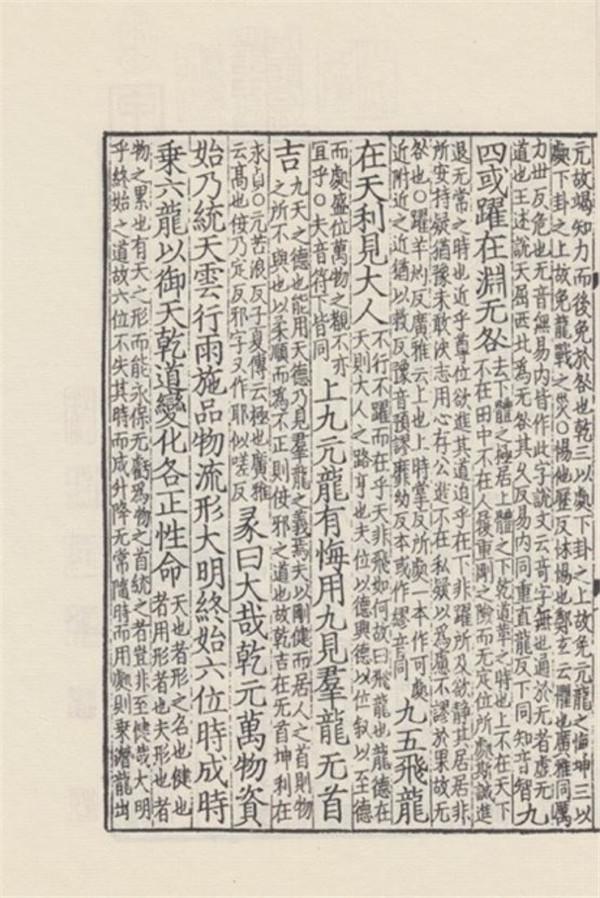 亢故竭知力而後免於咎也乾三以處下卦之上故免亢龍之悔坤三以
處下卦之上故免龍戰之災〇惕他歷反怵惕也鄭玄云懼也廣雅同厲
力世反危也无音無易內皆作此字說文云奇字無也通於无者虛无
道也王述說天屈西北為无咎其久反易內同重直龍反下同知音智
九
四或躍在淵无咎
去下體之極居上體之下乾道革之時也上不在天下
不在田中不在人履重剛之險而无定位所處斯誠進
退无常之時也近乎尊位欲進其道迫乎在下非躍所及欲靜其居居非
所安持疑猶豫未敢決志用心存公進不在私疑以為慮不謬於果故无
咎也〇躍羊灼反廣雅云上也上時掌反所處一本作可處
近附近之近猶以救反豫音預謬靡幼反本或作繆音同
九五飛龍
在天利見大人
不行不躍而在乎天非飛如何故曰飛龍也龍德在
天則大人之路亨也夫位以德興德以位敘以至德
而處盛位萬物之覩不亦
宜乎〇夫音符下皆同
上九亢龍有悔用九見羣龍无首
吉
九天之德也能用天德乃見羣龍之義焉夫以剛健而居人之首則物
之所不與也以柔順而為不正則佞邪之道也故乾吉在无首坤利在
永貞〇亢苦浪反子夏傳云極也廣雅
云高也佞乃定反邪字又作耶似嗟反
彖曰大哉乾元萬物資
始乃統天雲行雨施品物流形大明終始六位時成時
乘六龍以御天乾道變化各正性命
天也者形之名也健也
者用形者也夫形也者
物之累也有天之形而能永保无虧為物之首統之者豈非至健哉大明
乎終始之道故六位不失其時而成升降无常隨時而用處則乘潛龍出